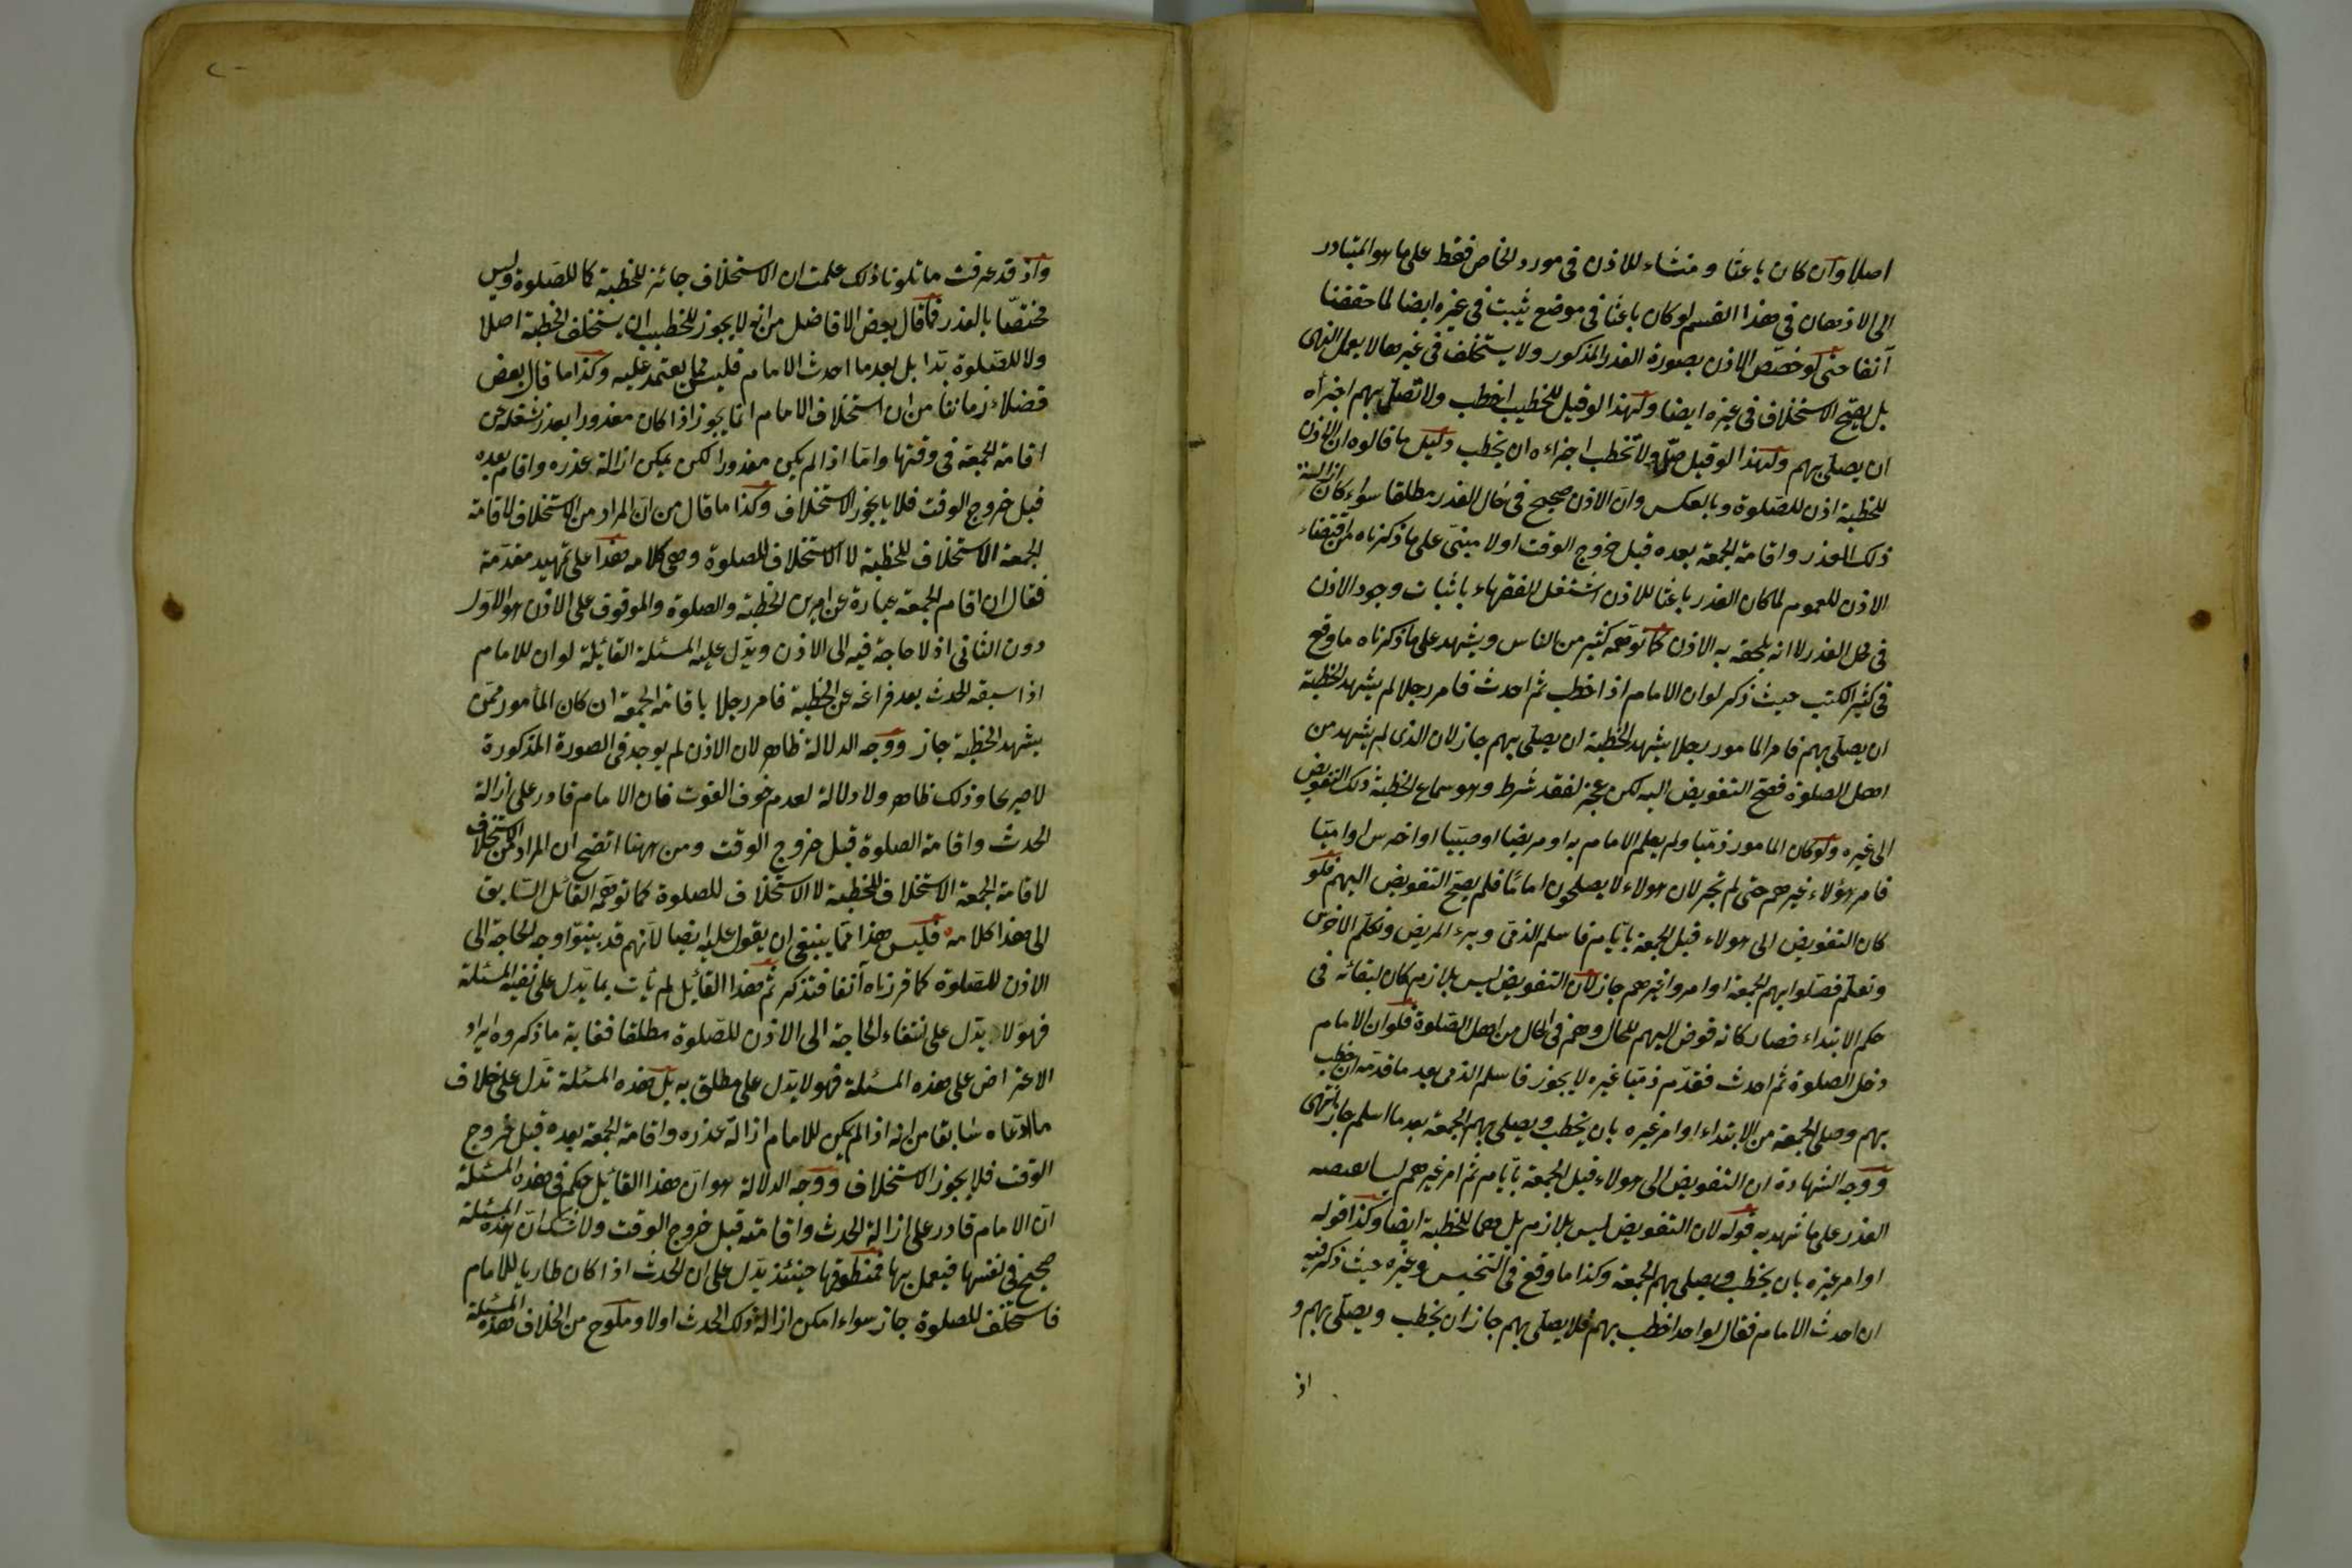 اصلا وان كان باعثا ومنشاء للاذن فى مورد الخاص فقط على ما هو المتبادر
الى الاذهان فى هذا القسم لو كان باعثا فى موضع يثبت فى غيره ايضا لما حققنا
آنفا حتى لو خصص الاذن بصورة العذر المذكور ولا يستخلف فى غيرها لا يعمل النهى
بل يصح الاستخلاف فى غيره ايضا ولهذا لو قيل للخطيب اخطب ولا تصل بهم اجزأه
ان يصلى بهم ولهذا لو قيل صل ولا تخطب اجزاءه ان يخطب دليل ما قالوه ان الاذن
للخطبة اذن للصلوة وبالعكس وان الاذن صحيح فى حال العذر مطلقا سواء كان ازالة
ذلك العذر واقامة الجمعة بعده قبل خروج الوقت اولا مبنى على ما ذكرناه من اقتضاء
الاذن للعموم لما كان العذر باعثا للاذن اشتغل الفقهاء باثبات وجود الاذن
فى محل العذر لا انه يلحقه به الاذن كما توهمه كثير من الناس ويشهد على ما ذكرناه ما وقع
فى كثير الكتب حيث ذكر لو ان الامام اذا خطب ثم احدث فامر رجلا لم يشهد الخطبة
ان يصلى بهم فامر المامور رجلا يشهد الخطبة ان يصلى بهم جاز لان الذى لم يشهد من
اهل الصلوة فصح التفويض اليه لكن عجز لفقد شرط وهو سماع الخطبة ذلك التفويض
الى غيره ولو كان المامور ذميا ولم يعلم الامام به او مريضا او صبيا او اخرس او اميا
فامر هؤلاء غيرهم حتى لم تجز لان هولاء لا يصلحون اماما فلم يصح التفويض اليهم فلو
كان التفويض الى هولاء قبل الجمعة بايام فاسلم الذمى وبرء المريض وتكلم الاخرس
وتعلم فصلوا بهم الجمعة او امروا غيرهم جاز لان التفويض ليس بلازم كان لبقائه فى
حكم الابتداء فصار كانه فوض اليهم للحال وهم فى الحال من اهل الصلوة فلو ان الامام
دخل الصلوة ثم احدث فقدم ذميا غيره لا يجوز فاسلم الذمى بعد ما قدمه ان خطب
بهم وصلى الجمعة من الابتداء او امر غيره بان يخطب ويصلى بهم الجمعة بعد ما اسلم جاز انتهى
ووجه الشهادة ان التفويض الى هولاء قبل الجمعة بايام ثم امر غيرهم
العذر على ما شهد به قوله لان التفويض ليس بلازم بل وهما للخطبة ايضا وكذا قوله
او امر غيره بان يخطب ويصلى بهم الجمعة وكذا ما وقع فى التنجيس وغيره حيث ذكر فيه
ان احدث الامام فقال لواحد اخطب بهم فلا يصلى بهم جاز ان يخطب ويصلى بهم و
اذ
واذ قد عرفت ما تلونا ذلك علمت ان الاستخلاف جائز للخطبة كا للصلوة وليس
مختصا بالعذر فما قال بعض الافاضل من انه لا يجوز للخطيب ان يستخلف الخطبة اصلا
ولا للصلوة بدا بل بعد ما احدث الامام فليس مما يعتمد عليه وكذا ما قال بعض
فضلاء زماننا من ان استخلاف الامام انما يجوز اذا كان معذورا بعذر شغله عن
اقامة الجمعة فى وقتها واما اذا لم يكن معذورا لكن يمكن ازالة عذره واقام بعده
قبل خروج الوقت فلا يجوز الاستخلاف وكذا ما قال من ان المراد من الاستخلاف لاقامة
الجمعة الاستخلاف للخطبة لا الاستخلاف للصلوة وهى كلامه هذا على تمهيد مقدمة
فقال ان اقام الجمعة عبارة عن امرين الخطبة والصلوة والموقوف على الاذن هو الاول
دون الثانى اذ لا حاجة فيه الى الاذن ويدل عليه المسئلة القائلة لو ان للامام
اذا سبقه الحدث بعد فراغه عن الخطبة فامر رجلا باقامة الجمعة ان كان المأمور ممن
يشهد الخطبة جاز ووجه الدلالة ظاهر لان الاذن لم يوجد فى الصورة المذكورة
لا صريحا وذلك ظاهر ولا دلالة لعدم خوف الفوت فان الامام قادر على ازالة
الحدث واقامة الصلوة قبل خروج الوقت ومن ههنا اتضح ان المراد من الاستخلاف
لاقامة الجمعة الاستخلاف للخطبة لا الاستخلاف للصلوة كما توهمه القائل السابق
الى هذا كلامه فليس هذا مما ينبغى ان يقول عليه ايضا لانهم قد بينوا وجه الحاجة الى
الاذن للصلوة كما قررناه آنفا فتذكر ثم هذا القائل لم يأت بما يدل على نفيه المسئلة
فهو لا يدل على انتفاء الحاجة الى الاذن للصلوة مطلقا فغاية ما ذكروه ايراد
الاعتراض على هذه المسئلة فهو لا يدل على مطلق به بل هذه المسئلة تدل على خلاف
ما ادعاه سابقا من انه اذا لم يكن للامام ازالة عذره واقامة الجمعة بعده قبل خروج
الوقت فلا يجوز الاستخلاف ووجه الدلالة هو ان هذا القائل حكم فى هذه المسئلة
ان الامام قادر على ازالة الحدث واقامته قبل خروج الوقت ولا شك ان هذه المسئلة
صحيح فى نفسها فيعمل بها فمنطوقها حينئذ يدل على ان الحدث اذا كان طاريا للامام
فاستخلف للصلوة جاز سواء امكن ازالة ذلك الحدث اولا وملوح من الخلاف هذه المسئلة